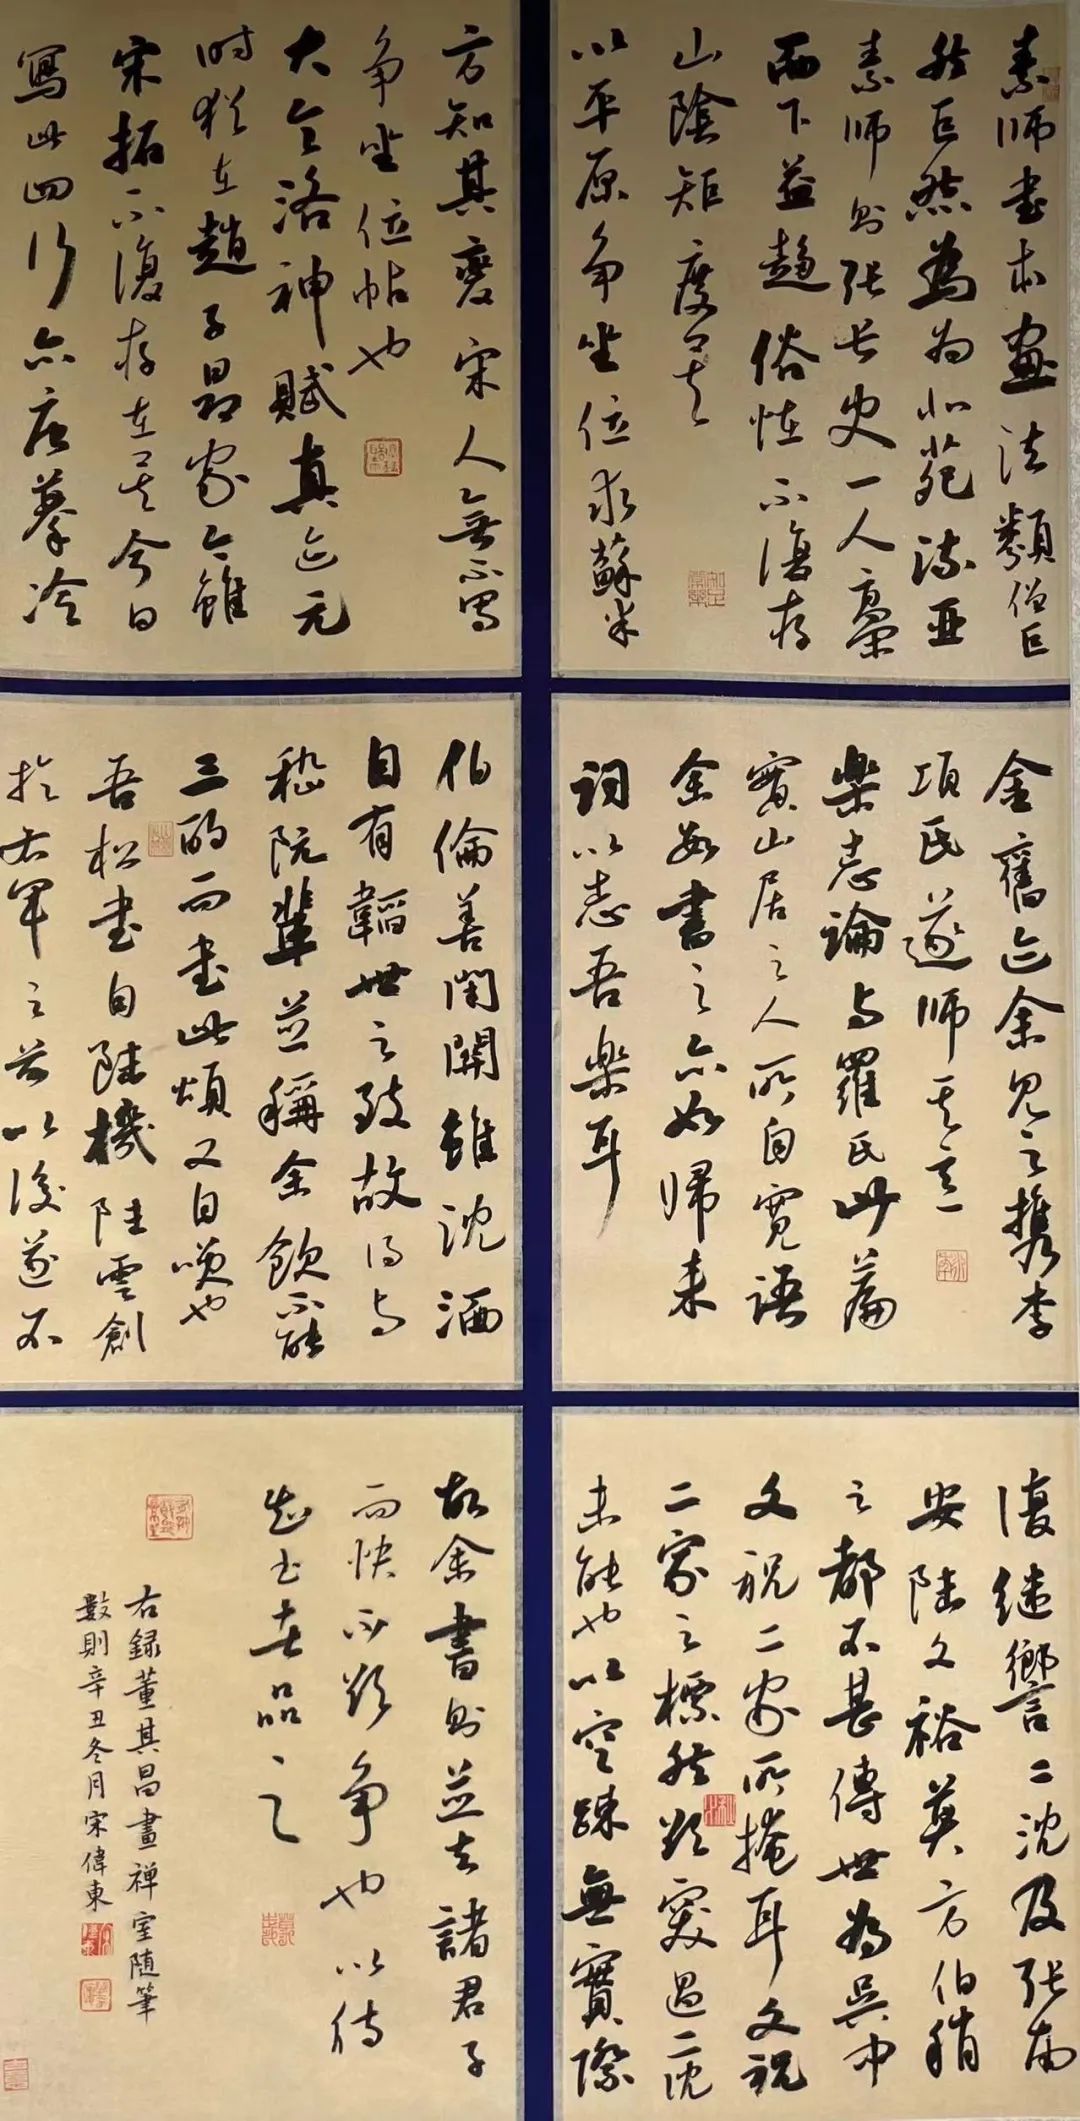 素師書本畫法類僧巨
然巨然為北苑流亞
素師則張長史一人藁
而下益趨俗怪不復存
山陰矩度矣
以平原争坐位求蘇米
方知其變宋人無不寫
争坐位帖也
大令洛神賦真迹元
時猶在趙子昂家今雖
宋拓不復存在矣今日
寫此四行亦唐摹冷
金舊迹余見之携李
項氏遂師其意
樂志論与羅氏此篇
實山居之人所自寬語
余每書之亦如歸来
詞以志吾樂耳
伯倫善閉關雖沈酒
自有韜世之致故得与
嵇阮輩並稱余飲不能
三酌而書此頌又自咲也
吾松書自陸機陸雲創
於右軍之前以後遂不
復継響二沈及張南
安陸文裕莫方伯稍
之都不甚傳世為吴中
文祝二家所掩耳文祝
二家之標然欲突過二沈
未能也以空疎無實際
故余書則並去諸君子
而快不欲争也以待
知書者品之
右録董其昌畫禅室随筆
數則辛丑冬月宋偉東